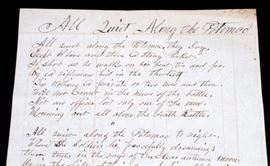 All Quiet Along the Potomac
All quiet along the Potomac, they say,
Except now and then a stray Picket
Is shot as he walks on his beat to and fro,
By a rifleman hid in the thicket
'Tis nothing a private or two now and then
Will not count in the news of the battle;
Not an officer lost only one of the men.
Moaning out all alone the death rattle,
All quiet along the Potomac to night,
Where the soldiers lie peacefully dreaming;
tents in the rays of the clear autumn moon,